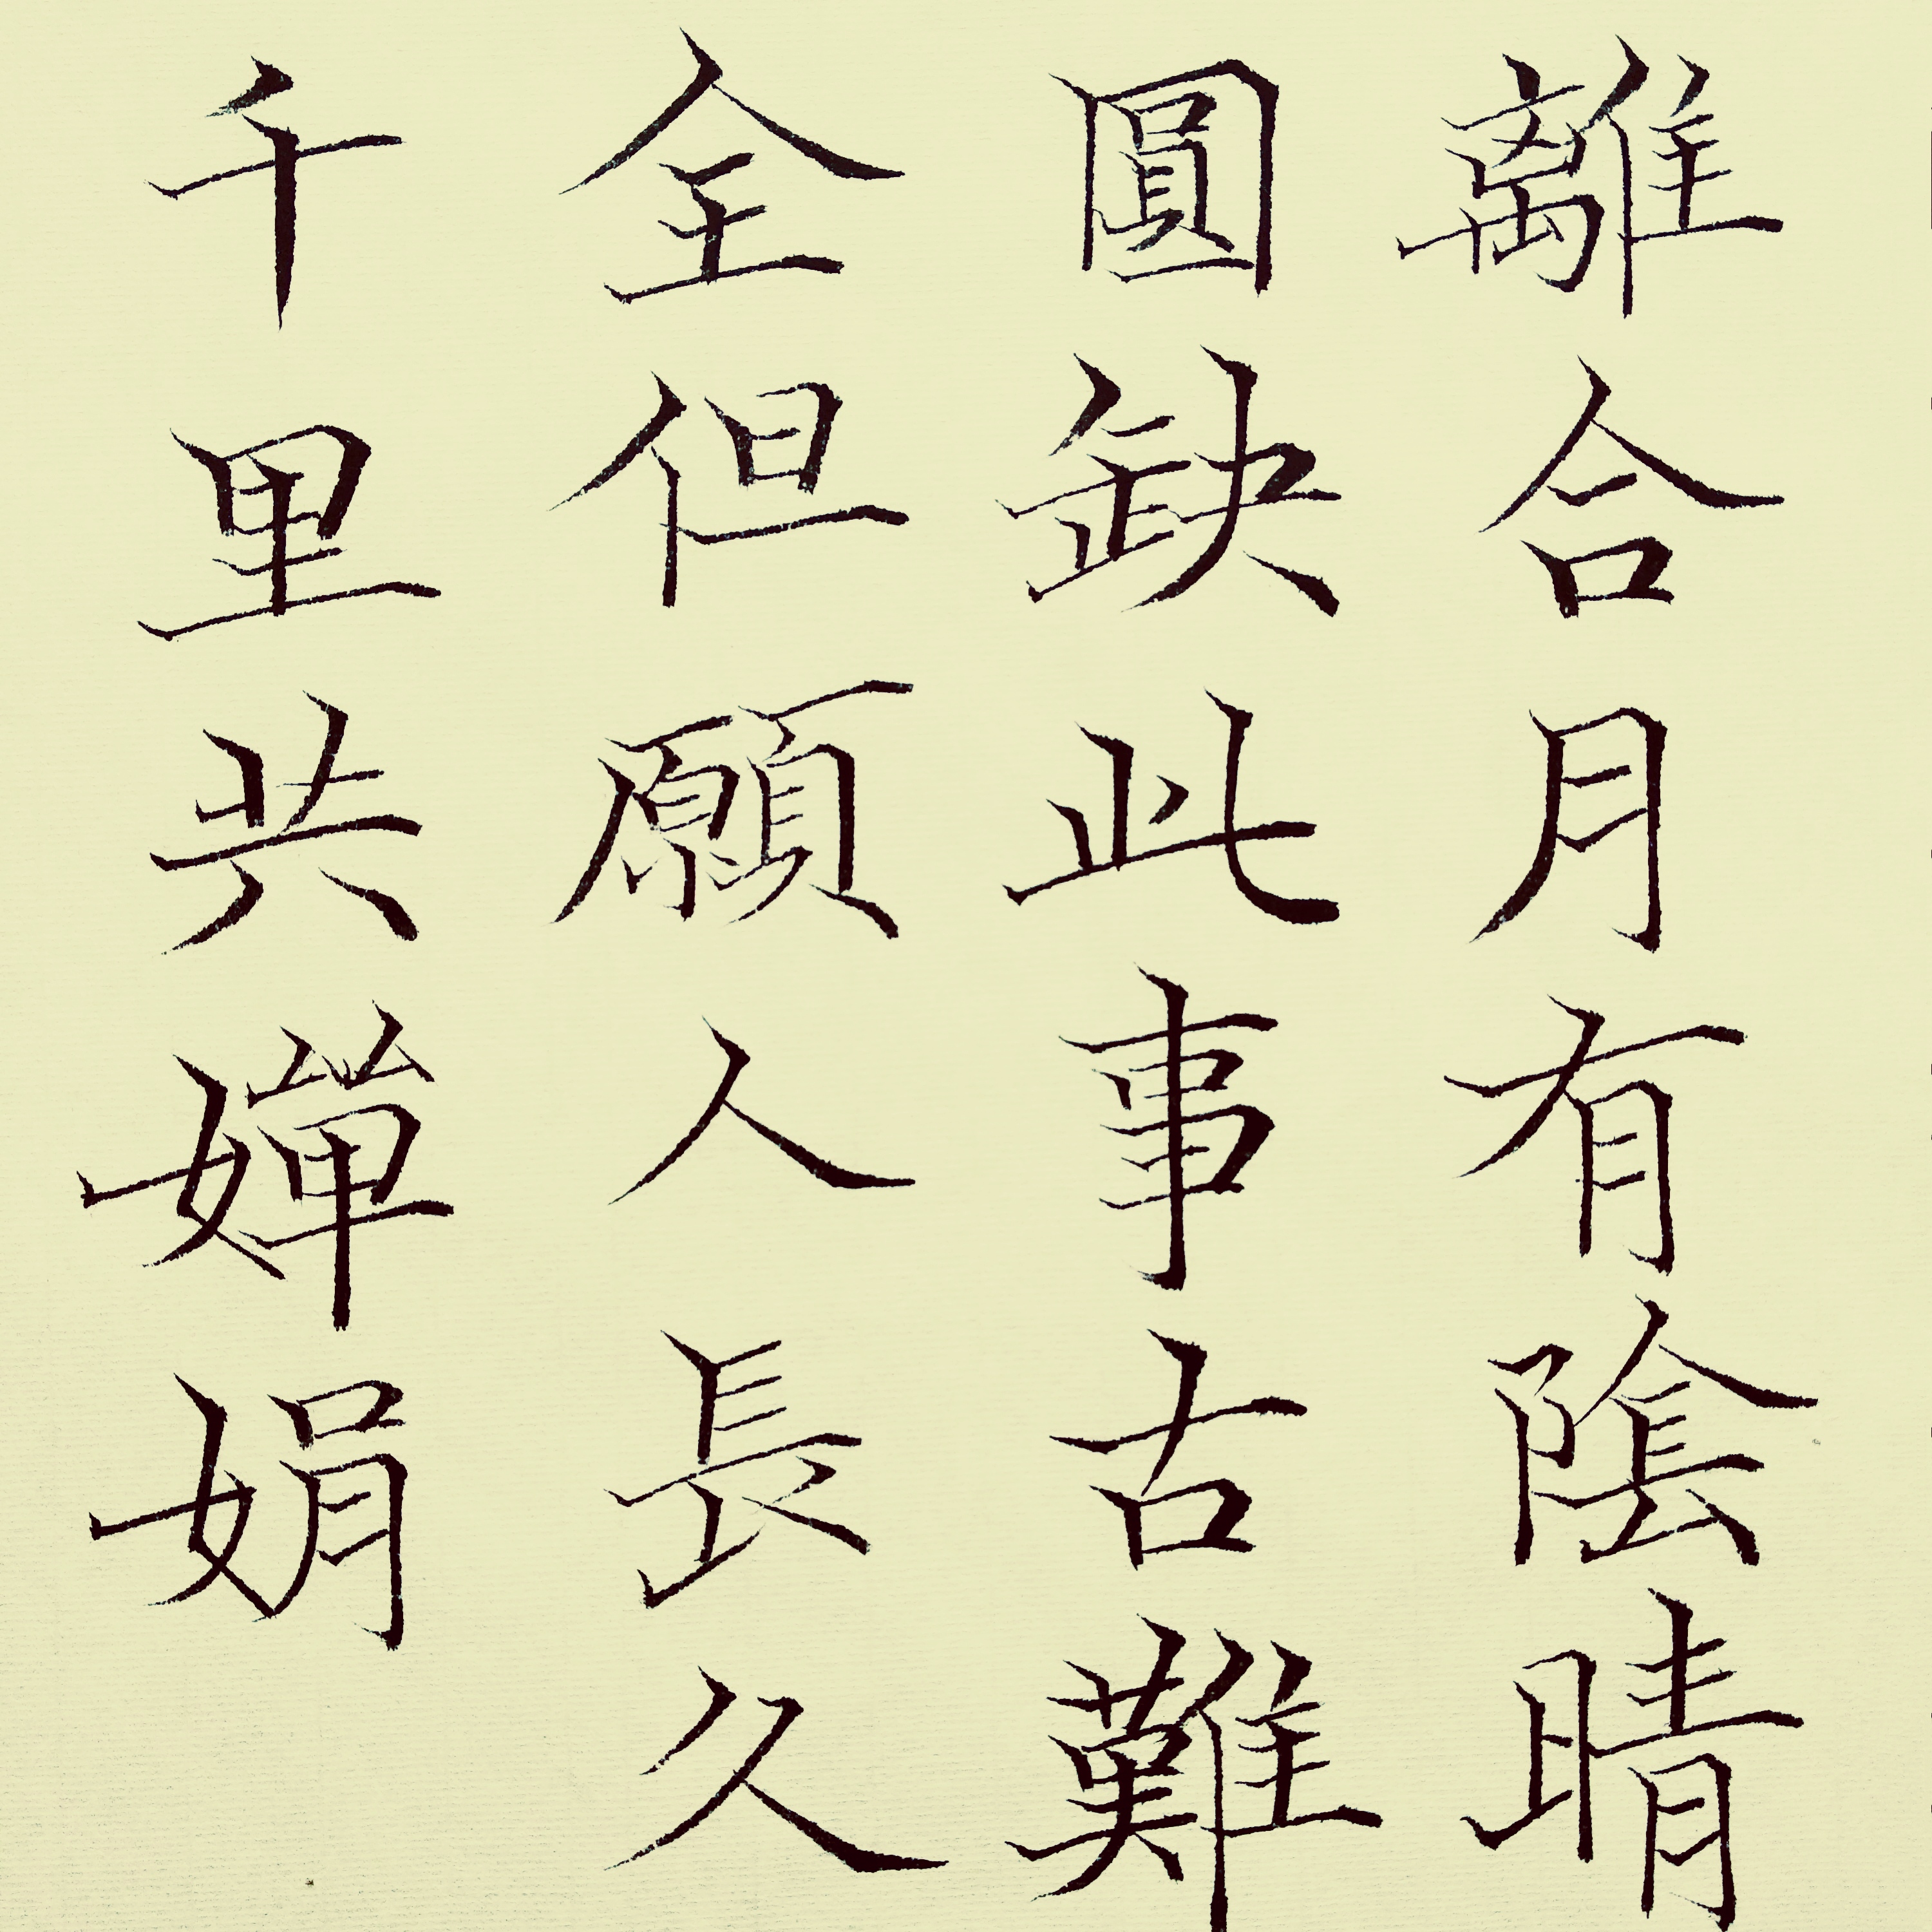 離合月有陰晴
圓缺此事古難
全但願人長久
千里共嬋娟